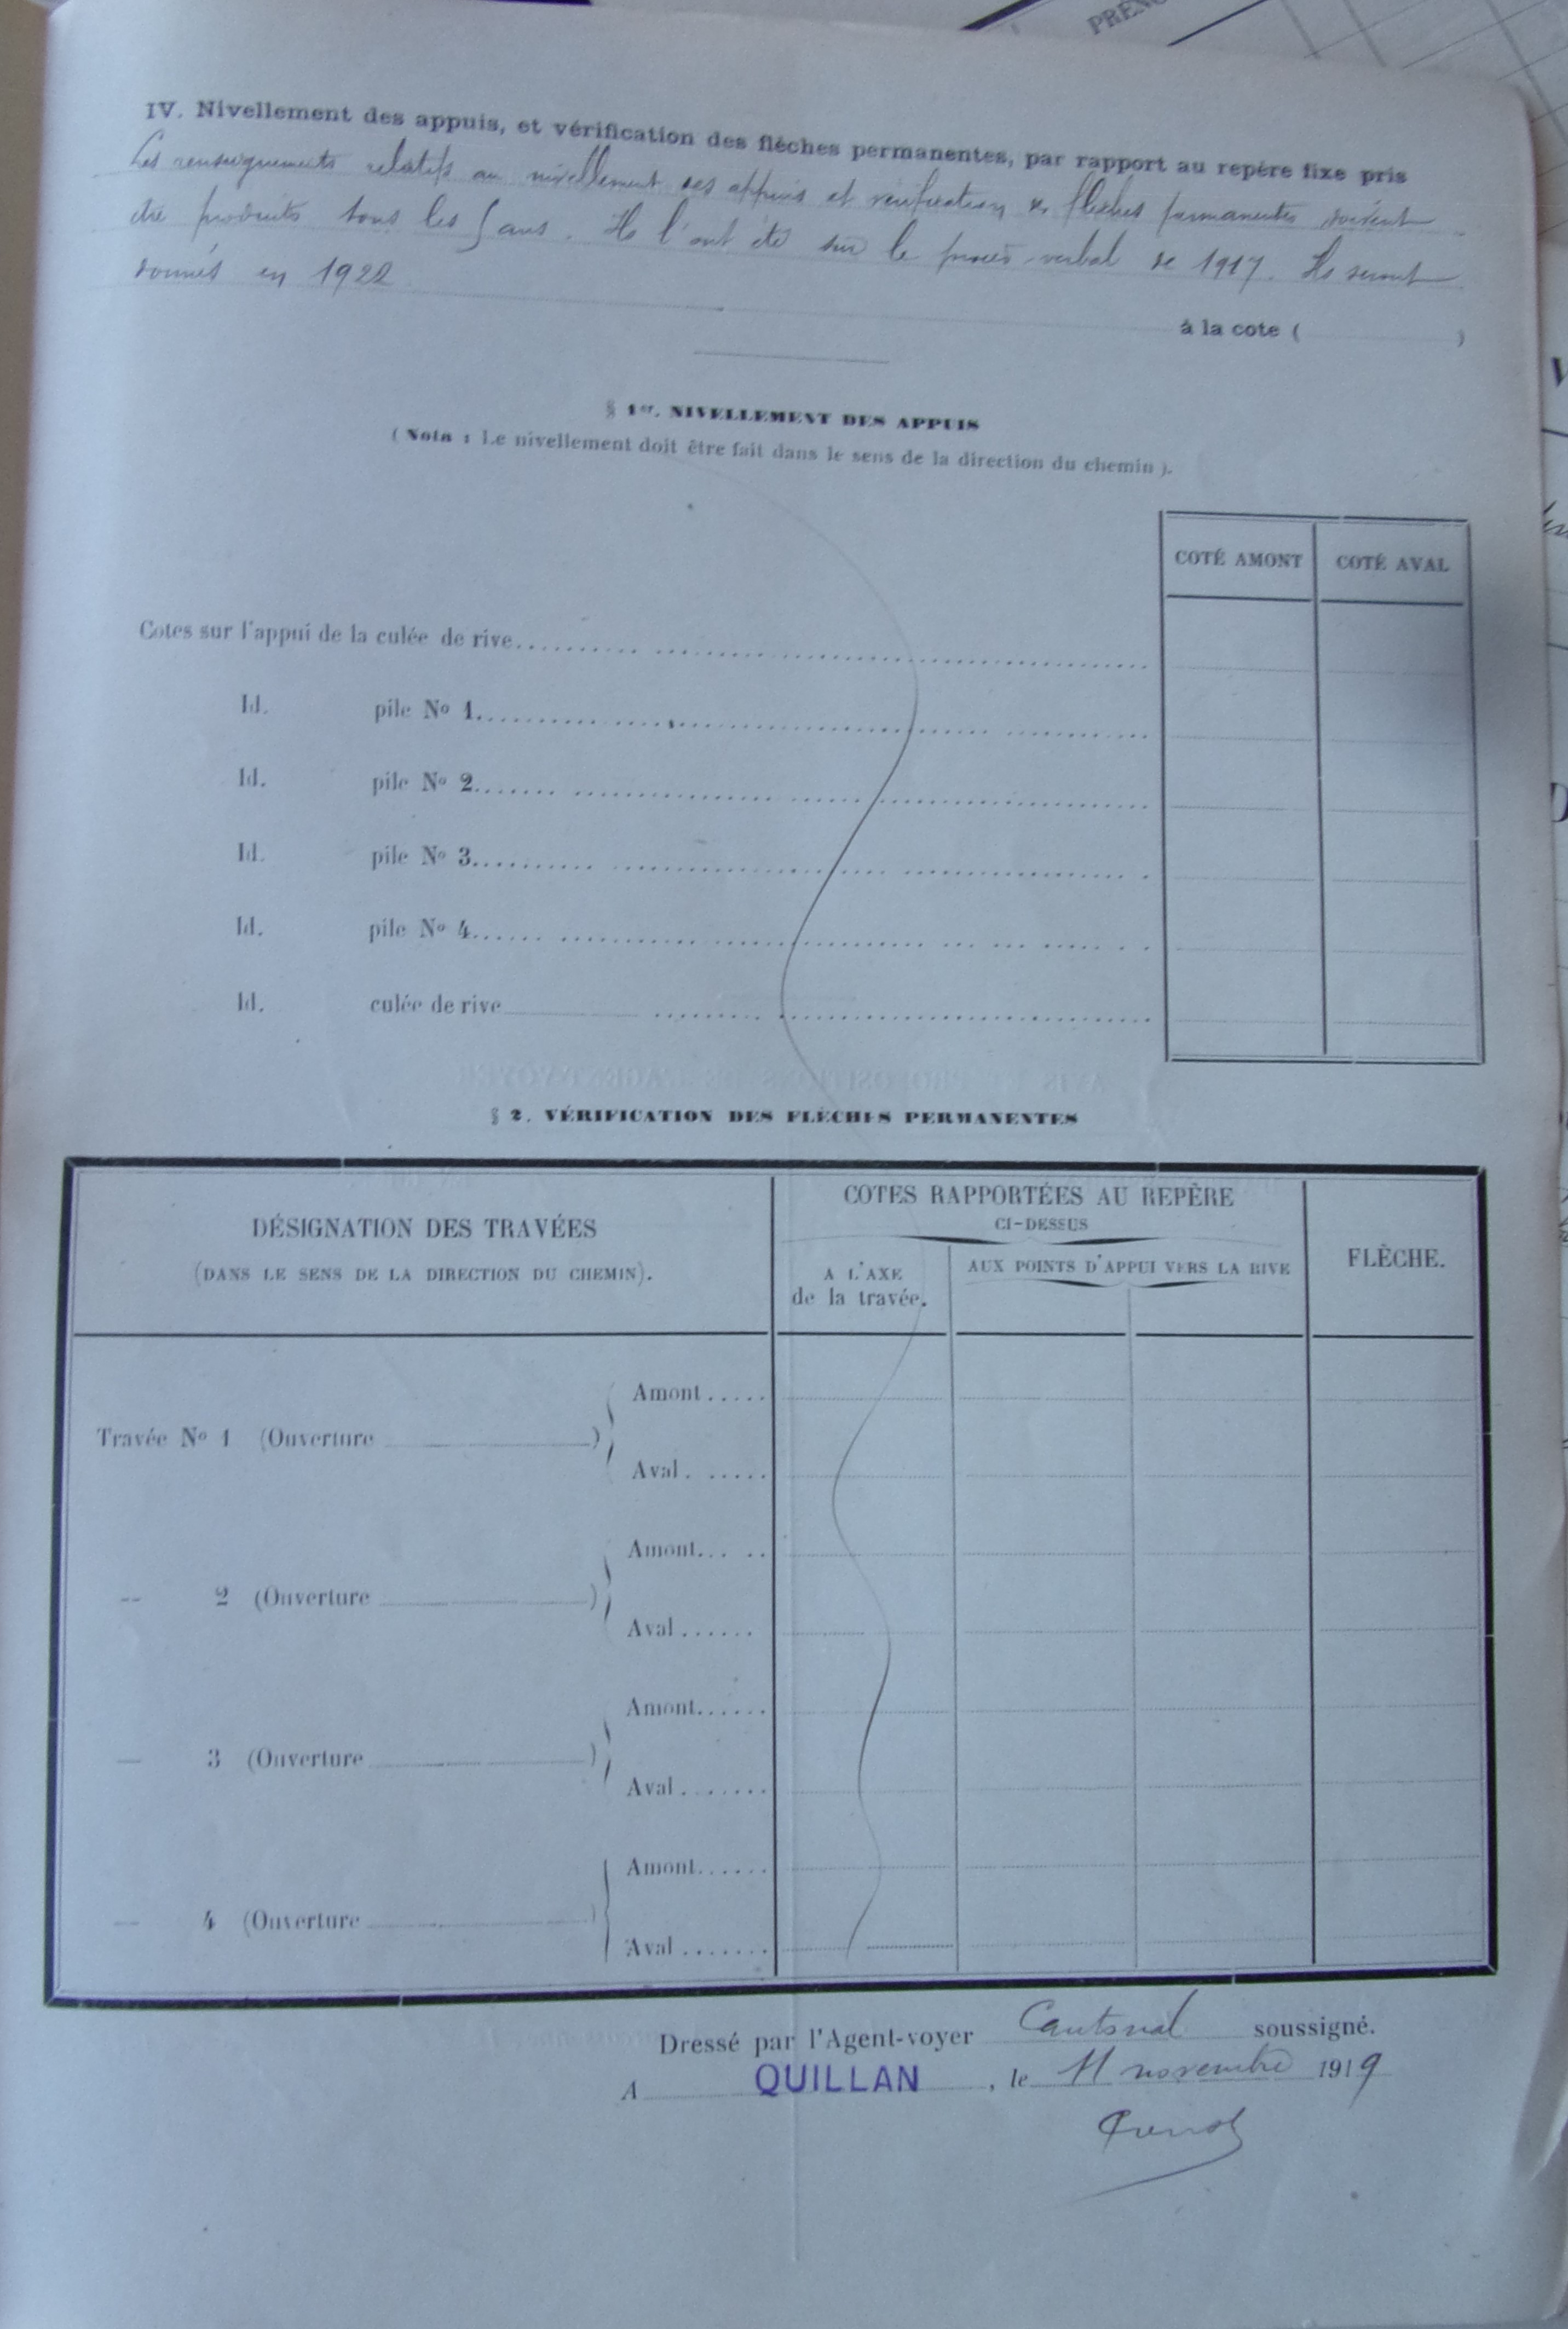 IV. Nivellement des appuis, et vérification des flèches permanentes, par rapport au repère fixe pris
Les renseignements relatifs au nivellement des appuis et vérification des flèches permanentes doivent
être produits tous les 5 ans. Ils l'ont été sur le procès-verbal de 1917. Ils seront
donnés en 1922
à la cote ( )
§ 1er. NIVELLEMENT DES APPUIS
( Nota : Le nivellement doit être fait dans le sens de la direction du chemin ).
COTÉ AMONT COTÉ AVAL
Cotes sur l'appui de la culée de rive
Id. pile No 1
Id. pile No 2
Id. pile No 3
Id. pile No 4
Id. culée de rive
§ 2. VÉRIFICATION DES FLÈCHES PERMANENTES
DÉSIGNATION DES TRAVÉES
(DANS LE SENS DE LA DIRECTION DU CHEMIN).
COTES RAPPORTÉES AU REPÈRE
CI-DESSUS
A L'AXE
de la travée.
AUX POINTS D'APPUI VERS LA RIVE
FLÈCHE.
Travée No 1 (Ouverture )
Amont
Aval
-- 2 (Ouverture )
Amont
Aval
— 3 (Ouverture )
Amont
Aval
— 4 (Ouverture )
Amont
Aval
Dressé par l'Agent-voyer Cantonal soussigné.
A QUILLAN, le 11 novembre 1919